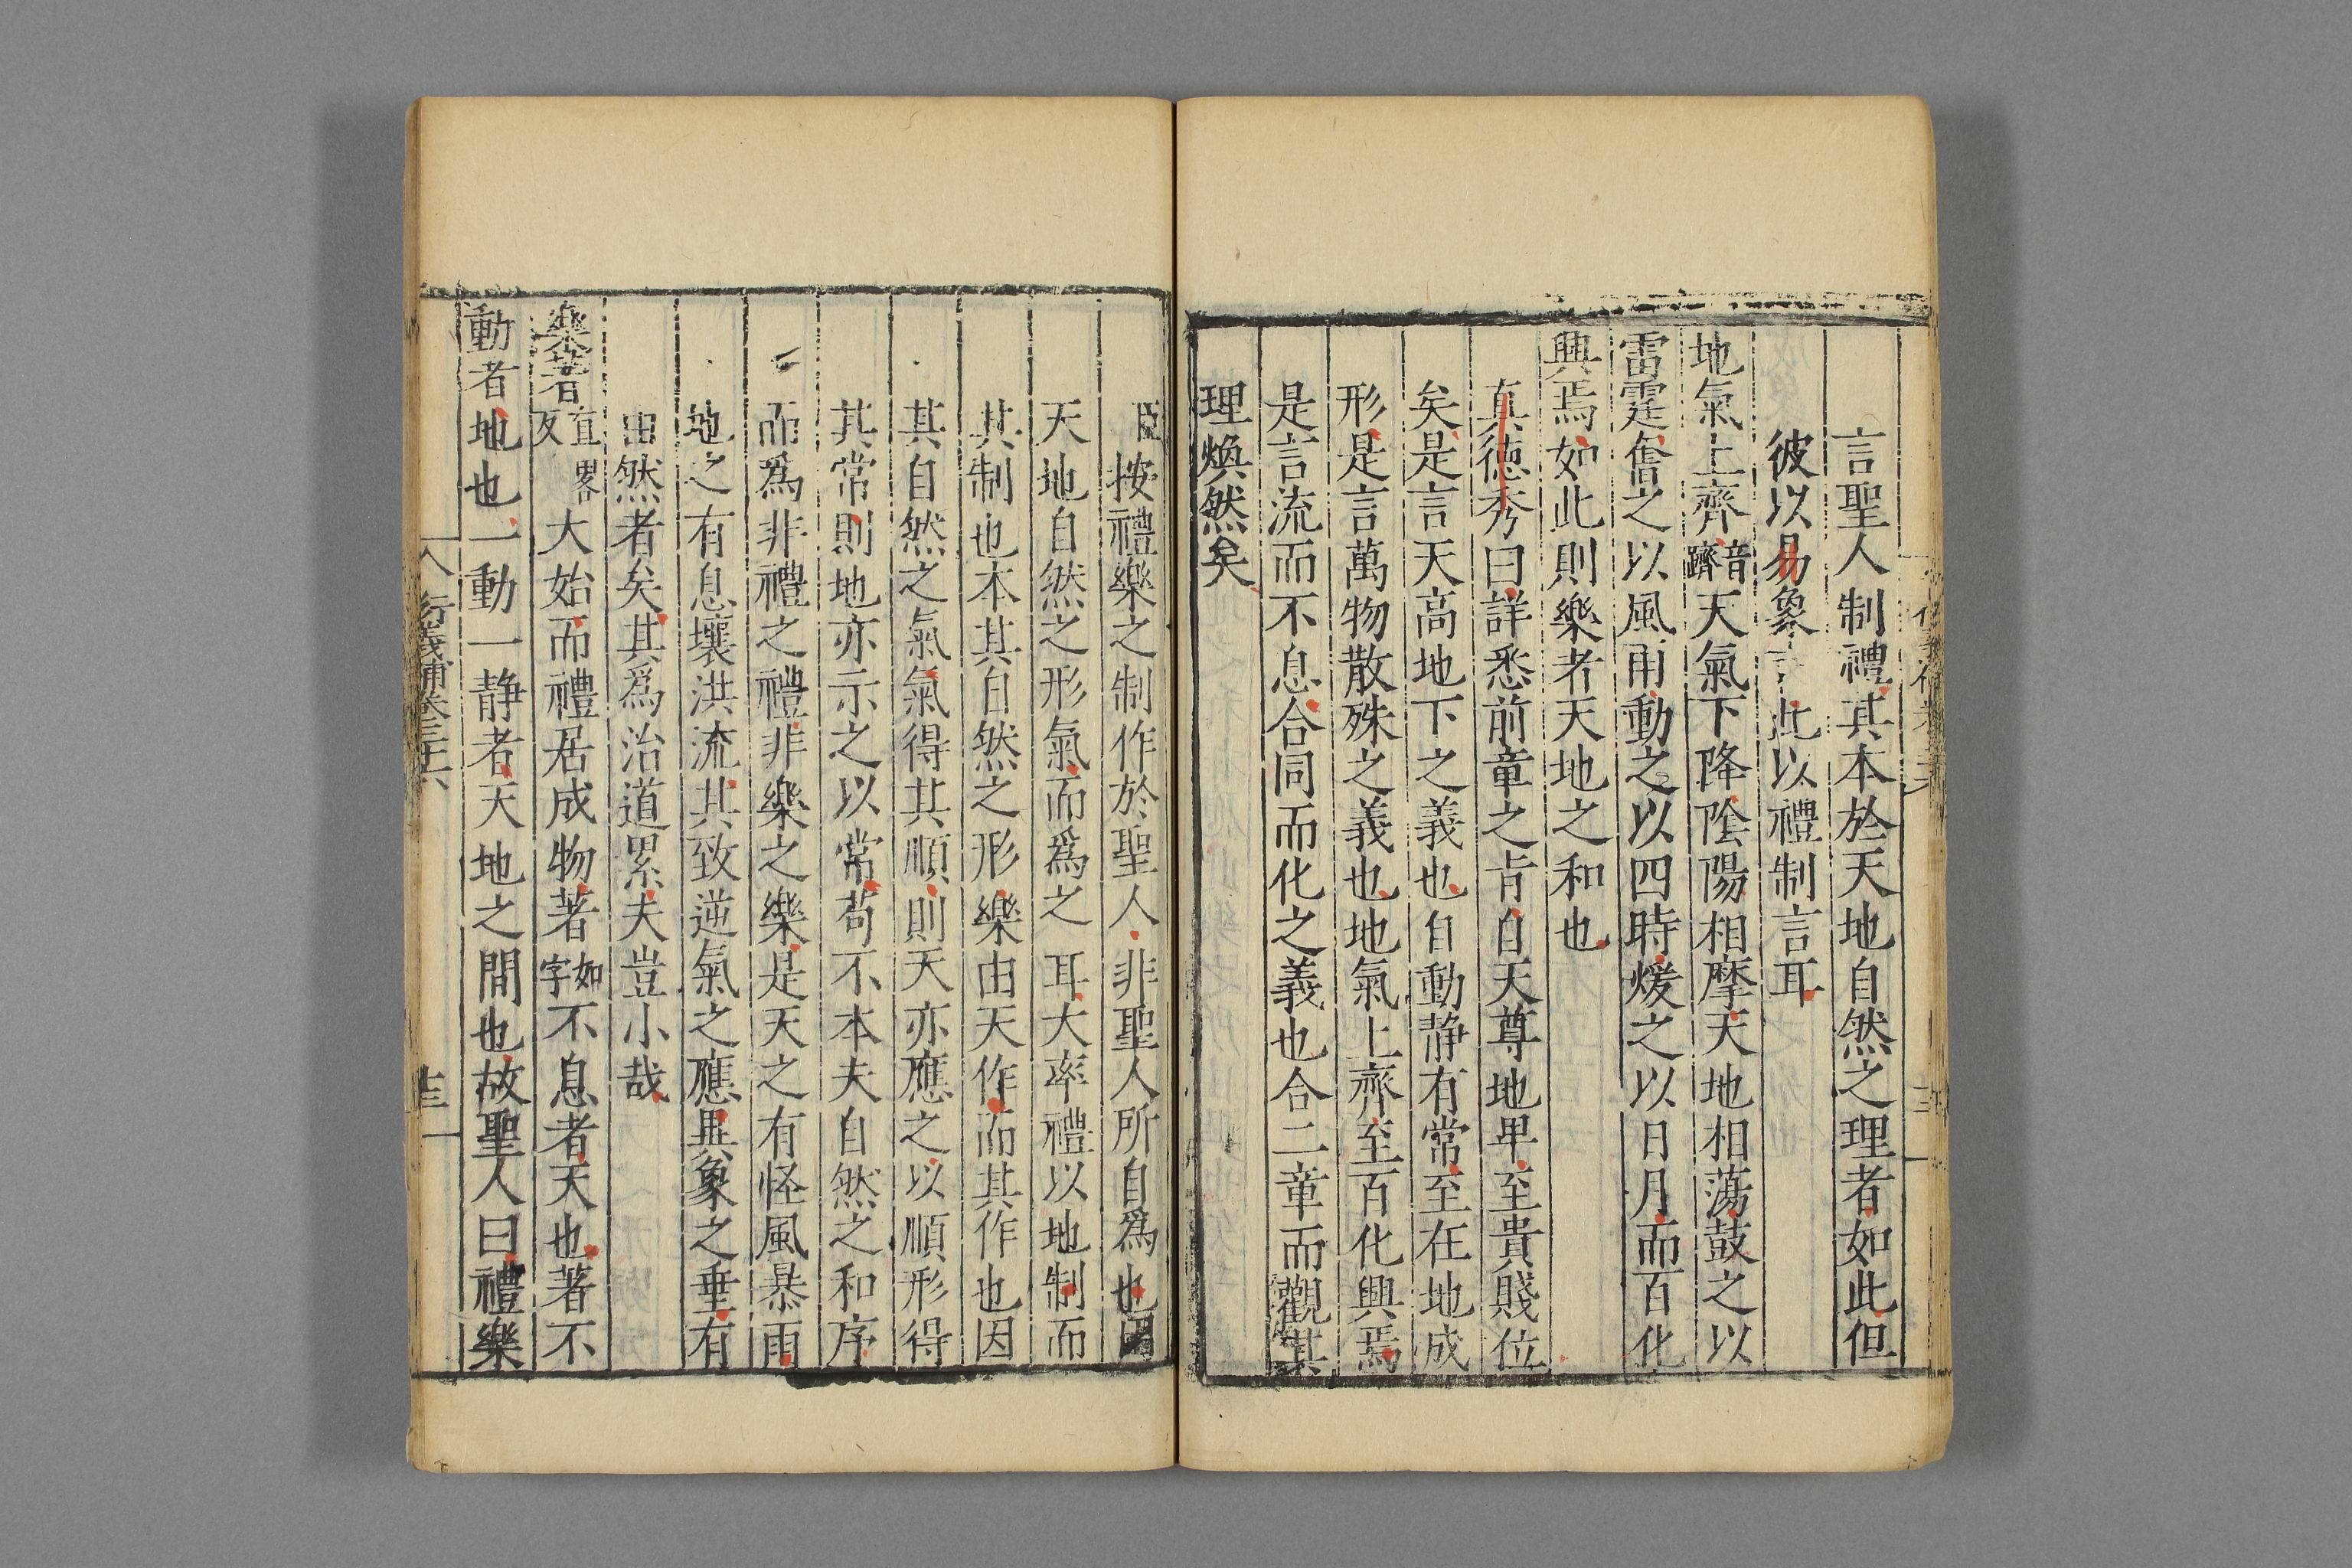 言聖人制禮其本於天地自然之理者如此但
彼以易象言此以禮制言耳
地氣上齊音躋天氣下降陰陽相摩天地相蕩鼓之以
雷霆奮之以風雨動之以四時煖之以日月而百化
興焉如此則樂者天地之和也
真德秀曰詳悉前章之㫖自天尊地卑至貴賤位
矣是言天高地下之義也自動静有常至在地成
形是言萬物散殊之義也地氣上齊至百化興焉
是言流而不息合同而化之義也合二章而觀其
理煥然矣
臣按禮樂之制作於聖人非聖人所自爲也因
天地自然之形氣而爲之耳大率禮以地制而
其制也本其自然之形樂由天作而其作也因
其自然之氣氣得其順則天亦應之以順形得
其常則地亦示之以常苟不本夫自然之和序
而爲非禮之禮非樂之樂是天之有怪風暴雨
地之有息壤洪流其致逆氣之應異象之垂有
由然者矣其爲治道累夫豈小哉
樂著直畧反大始而禮居成物著如字不息者天也著不
動者地也一動一静者天地之間也故聖人曰禮樂
衍義補卷三十六